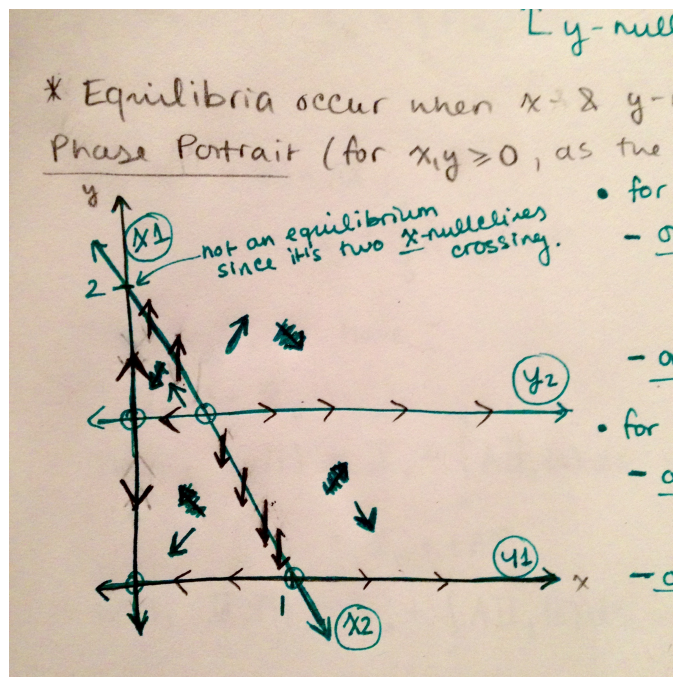 y-null
* Equilibria occur when x- & y-
Phase Portrait (for x,y ≥ 0, as the
y
• for
x1
not an equilibrium
since it's two x-nullclines
crossing.
2
y2
• for
y1
x
1
x2